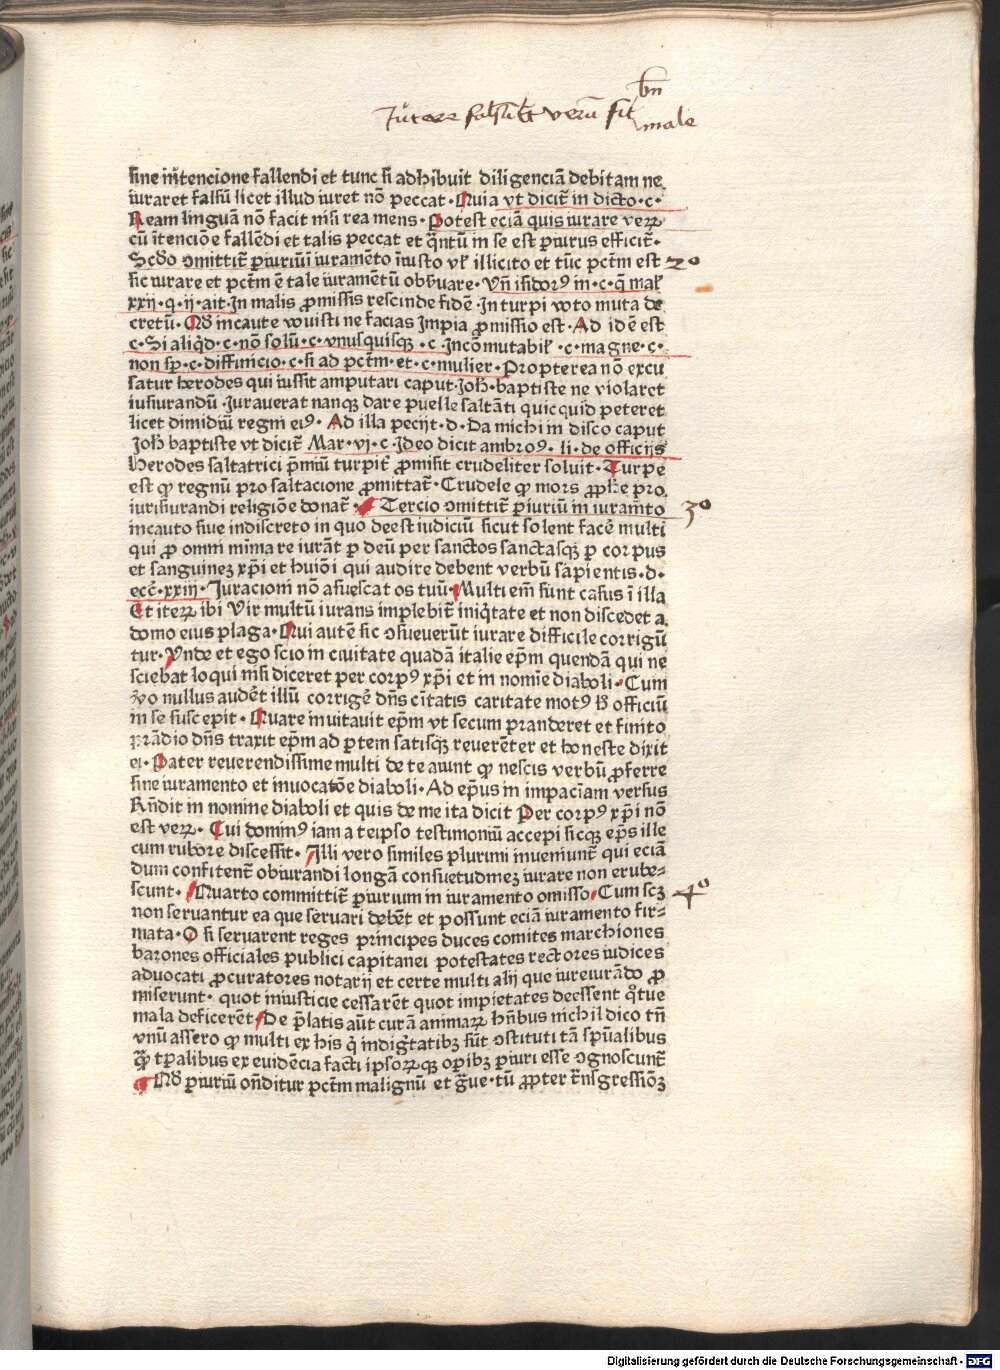 Jurare falsum et verum fit
bn̄
male
sine intencione fallendi et tunc si adhibuit diligenciā debitam ne
iuraret falsū licet illud iuret nō peccat · Quia vt dicit̄ in dicto · c ·
Ream linguā nō facit nisi rea mens · Potest eciā quis iurare veꝝ
cū ītenciōe fallēdi et talis peccat et q̄ntū in se est ꝑiurus efficit̄ ·
Scd̄o ꝯmittit̄ ꝑiuriū iuramēto īiusto vl̓ illicito et tūc pctm̄ est
2º
sic iurare et pctm̄ ē tale iuramētū obẜuare · Vn̄ isidorꝰ in · c · q̄ mal̓
xxij · q · ij · ait · In malis ꝓmissis rescinde fidē · In turpi voto muta de
cretū · Qd̓ incaute vouisti ne facias Impia ꝓmissio est · Ad idē est
c · Si aliq̓d · c · nō solū · c · vnusquisqꝫ · c · Incōmutabil̓ · c · magne · c ·
non sp̄ · c · diffinicio · c · si ad pctm̄ · et · c · mulier · Propterea nō excu
satur herodes qui iussit amputari caput · Joh̄ · baptiste ne violaret
iusiurandū · Jurauerat nanqꝫ dare puelle saltāti quicquid peteret
licet dimidiū regni eiꝰ · Ad illa pecijt · d · Da michi in disco caput
Joh̄ baptiste vt dicit̄ Mar · vj · c · Ideo dicit ambroꝰ · li · de officijs
Herodes saltatrici p̄miū turpit̓ ꝓmisit crudeliter soluit · Turpe
est ꝙ regnū pro saltacione ꝓmittat̄ · Crudele ꝙ mors ꝓph̓e pro
iurisiurandi religiōe donat̄ · Tercio ꝯmittit̄ ꝑiuriū in iuramt̄o
3º
incauto siue indiscreto in quo deest iudiciū sicut solent facē multi
qui ꝓ omni minima re iurāt ꝑ deū per sanctos sanctasqꝫ ꝑ corpus
et sanguinez xp̄i et huiōi qui audire debent verbū sapientis · d ·
ecc̄ · xxiij · Juracioni nō assuescat os tuū · Multi em̄ sunt casus ī illa
Et iteꝝ ibi Vir multū iurans implebit̄ iniq̓tate et non discedet a
domo eius plaga · Qui autē sic ꝯsueuerūt iurare difficile corrigū
tur · Vnde et ego scio in ciuitate quadā italie ep̄m quendā qui ne
sciebat loqui nisi diceret per corpꝰ xp̄i et in nomīe diaboli · Cum
v̓o nullus audēt illū corrigē dn̄s cītatis caritate motꝰ h̓ officiū
in se suscepit · Quare inuitauit ep̄m vt secum pranderet et finito
prādio dn̄s traxit ep̄m ad ꝑtem satisqꝫ reuerēter et honeste dixit
ei · Pater reuerendissime multi de te aiunt ꝙ nescis verbū ꝓferre
sine iuramento et inuocatōe diaboli · Ad ep̄us in impaciam versus
Rn̄dit in nomine diaboli et quis de me ita dicit Per corpꝰ xp̄i nō
est veꝝ · Cui dominꝰ iam a teipso testimoniū accepi sicqꝫ ep̄s ille
cum rubore discessit · Illi vero similes plurimi inueniunt̄ qui eciā
dum confitent̄ obiurandi longā consuetudinez iurare non erube⸗
scunt · Quarto committit̄ ꝑiurium in iuramento omisso · Cum scꝫ
4º
non seruantur ea que seruari debēt et possunt eciā iuramento fir⸗
mata · O si seruarent reges principes duces comites marchiones
barones officiales publici capitanei potestates rectores iudices
aduocati ꝓcuratores notarij et certe multi alij que iureiurādo ꝓ
miserunt · quot iniusticie cessarēt quot impietates decssent q̓tue
mala deficerēt · De p̄latis aūt curā animaꝝ hn̄bus nichil dico tn̄
vnū assero ꝙ multi ex his q̓ indig̓tatibꝫ sūt ꝯstituti tā sp̄ualibus
q̄ꝫ tꝑalibus ex euidēcia facti ipsoꝝqꝫ oꝑibꝫ ꝑiuri esse ꝯgnoscunt̄
Qd̓ ꝑiuriū on̄ditur pctm̄ malignū et g̓ue · tū ꝓpter t̄nsgressiōꝫ
Digitalisierung gefördert durch die Deutsche Forschungsgemeinschaft - DFG